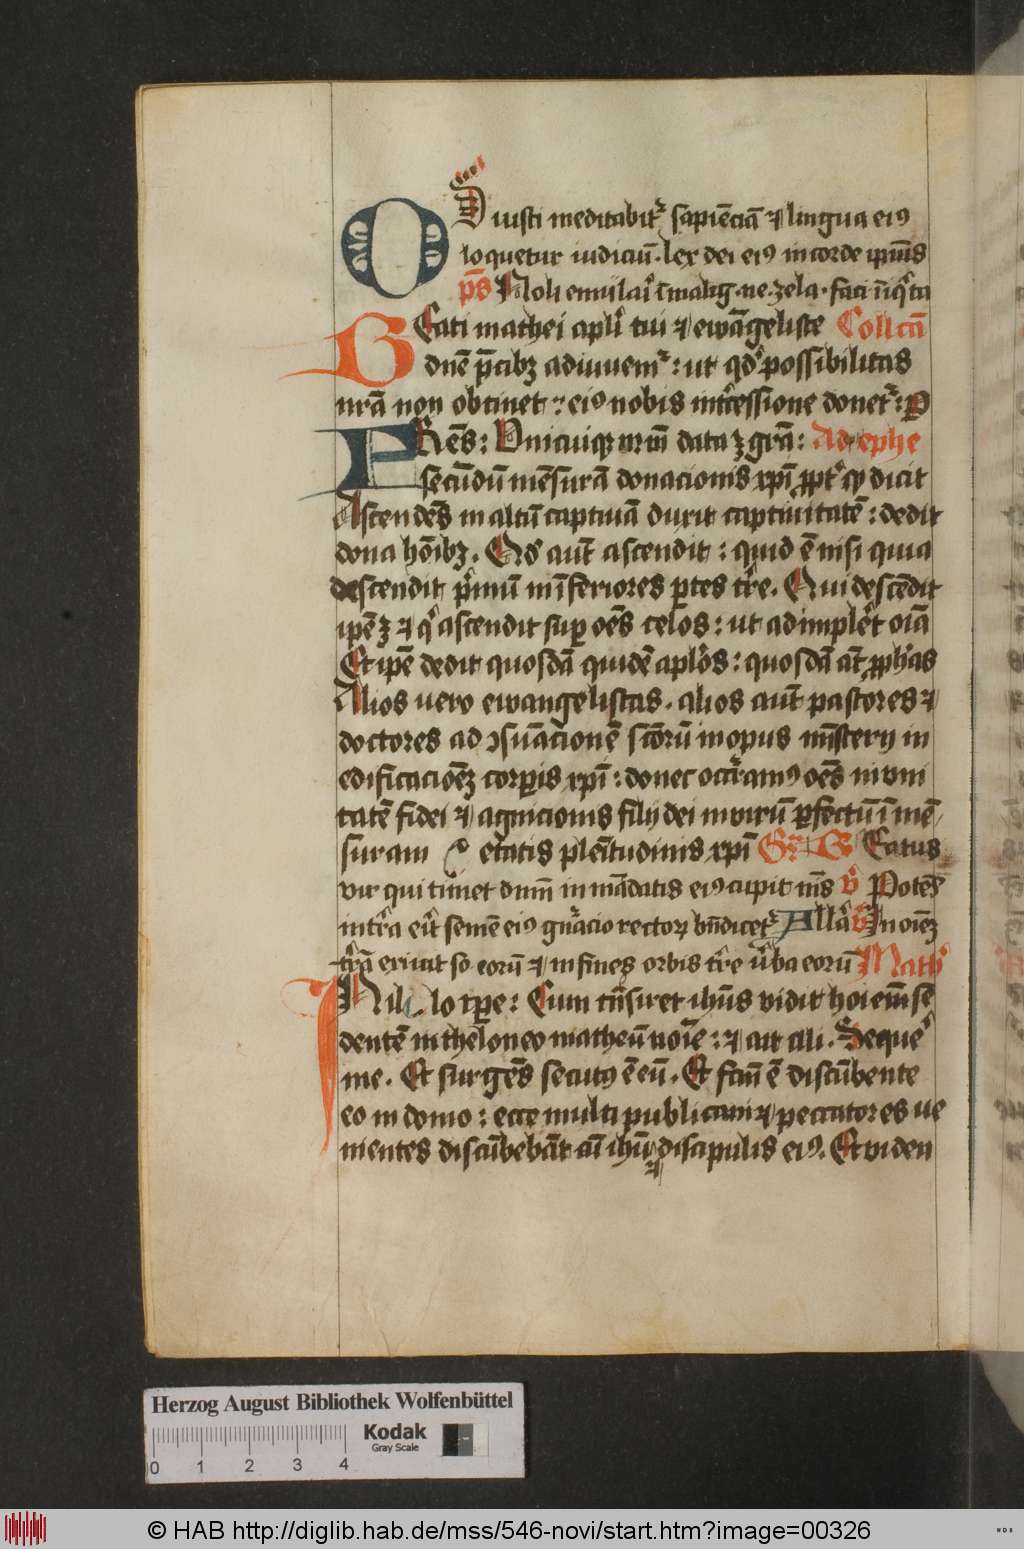 OS iusti meditabit᷑ sapiēciā ⁊ lingua eiꝰ
loquetur iudiciū · lex dei eiꝰ in corde ipsiꝰ
p̄s Noli emulai᷑ ī malig · ne · zela · faci īiq̇ta
BEati mathei apli̇ tui ⁊ ewāgeliste Collcā
dnē p̄cibꝫ adiuuem᷑ : ut qd̓ possibilitas
nr̄a non obtinet : eiꝰ nobis int̓cessione donet᷑ : P
FRēs : Unicuiqꝫ nr̄m data ꝫ gr̄a : Ad ephe
secūdū mēsurā donacionis xp̄i ꝓpt̓ qḋ dicit
Ascendēs in altū captiuā duxit captiuitatē : dedit
dona hōibꝫ . Qḋ aut̄ ascendit : quid ē nisi quia
descendit p̓mū in īferiores ꝑtes tr̄e . Qui descēdit
ipe ꝫ ⁊ q̓ ascendit suꝑ oēs celos : ut adimplet̓ oīa
Et ipē dedit quosdā quidē aplōs : quosdā at̄ ꝓph̓as
Alios uero ewangelistas . alios aut̄ pastores ⁊
doctores ad ꝯsūacionē sc̄orū in opus mīstery in
edificacionē corꝑis xp̄i : donec occur̓amꝰ oēs in vni
tatē fidei ⁊ agnicionis filij dei in virū ꝑfectū ī mē
suram etatis plēitudinis xp̄i Gr̄ BEatus
vir qui timet dnm̄ in mādatis eiꝰ cupit nīs ꝟ Potēs
in tr̓a erit̓ semē eiꝰ gn̄acio rectoꝝ bn̄dicet᷑ Allā ꝟ In oīēꝫ
tr̄ā exiuit so eorū ⁊ in fines orbis tr̄e v̓ba eorū Math̓
IN il lo tꝑe : Cum trāsiret ih̄us vidit hoīem se
dentē in theloneo matheū noīe : ⁊ ait illi . Seque᷑
me . Et surgēs secutꝰ ē eū . Et fctm̄ ē discūbente
eo in domo : ecce multi publicani ⁊ peccatores ue
nientes discūbebāt cū ih̄u ⁊ discipulis eiꝰ . Et viden
Herzog August Bibliothek Wolfenbüttel
Kodak
Gray Scale
0 1 2 3 4
© HAB http://diglib.hab.de/mss/546-novi/start.htm?image=00326